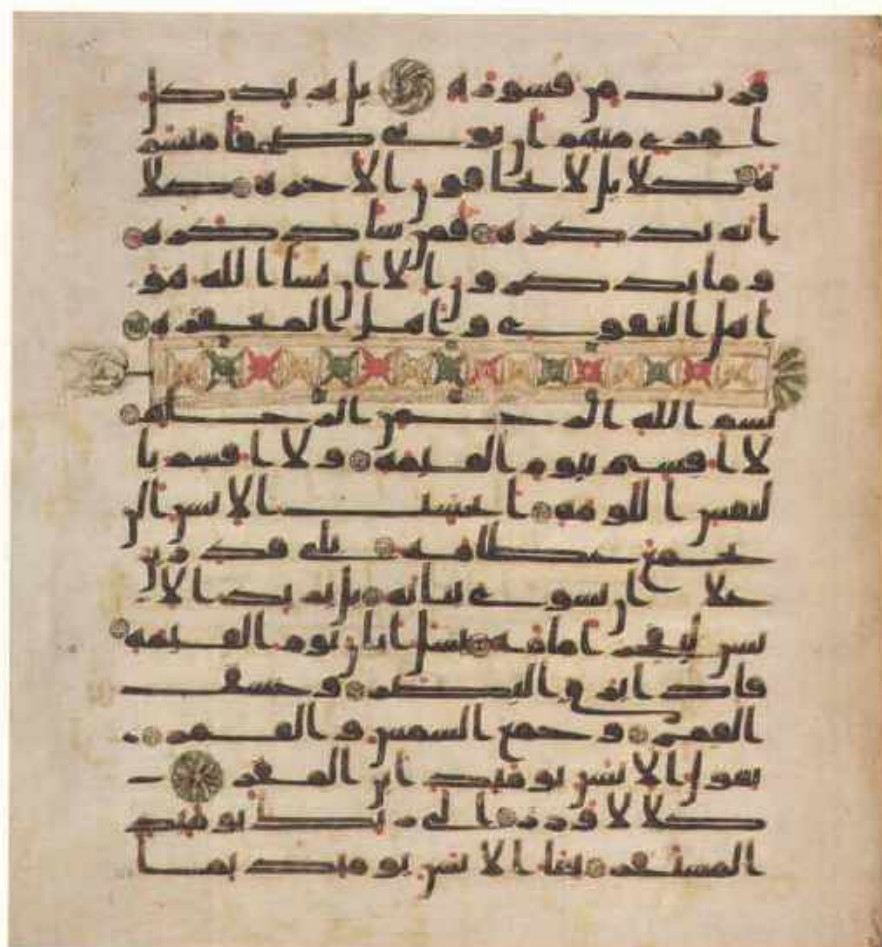 فرت من قسورة بل يريد كل
امرئ منهم ان يوتى صحفا منشر
ة كلا بل لا يخافون الاخرة كلا
انه تذكرة فمن شا ذكره
وما يذكرون الا ان يشا الله هو
اهل التقوى واهل المغفرة
بسم الله الرحمن الرحيم
لا اقسم بيوم القيمة ولا اقسم با
لنفس اللومة ايحسب الانسن الن
نجمع عظامه بلى قدرين
على ان نسوى بنانه بل يريد الا
نسن ليفجر امامه يسل ايان يوم القيمة
فاذا برق البصر وخسف
القمر وجمع الشمس والقمر
يقول الانسن يومئذ اين المفر
كلا لا وزر الى ربك يومئذ
المستقر ينبا الانسن يومئذ بما